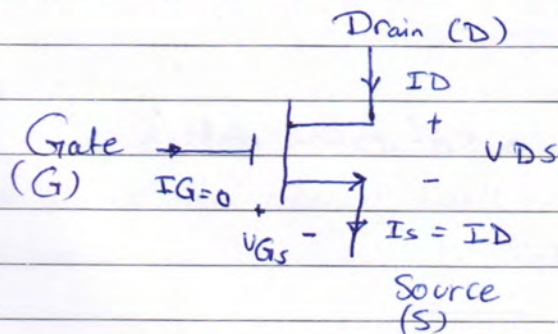 Drain (D)
ID
+
Gate
VDS
(G)
IG=0
-
+
VGs
-
Is = ID
Source
(S)